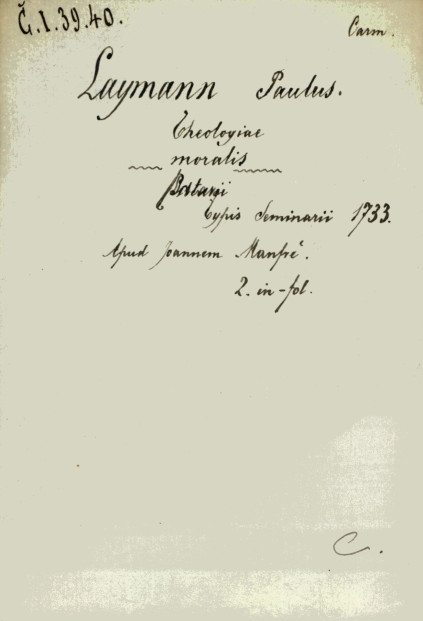 Č.I.39.40.
Carm.
Laymann Paulus.
Theologiae
moralis
Patavii
Typis Seminarii 1733.
Apud Joannem Manfrè.
2. in-fol.
C.